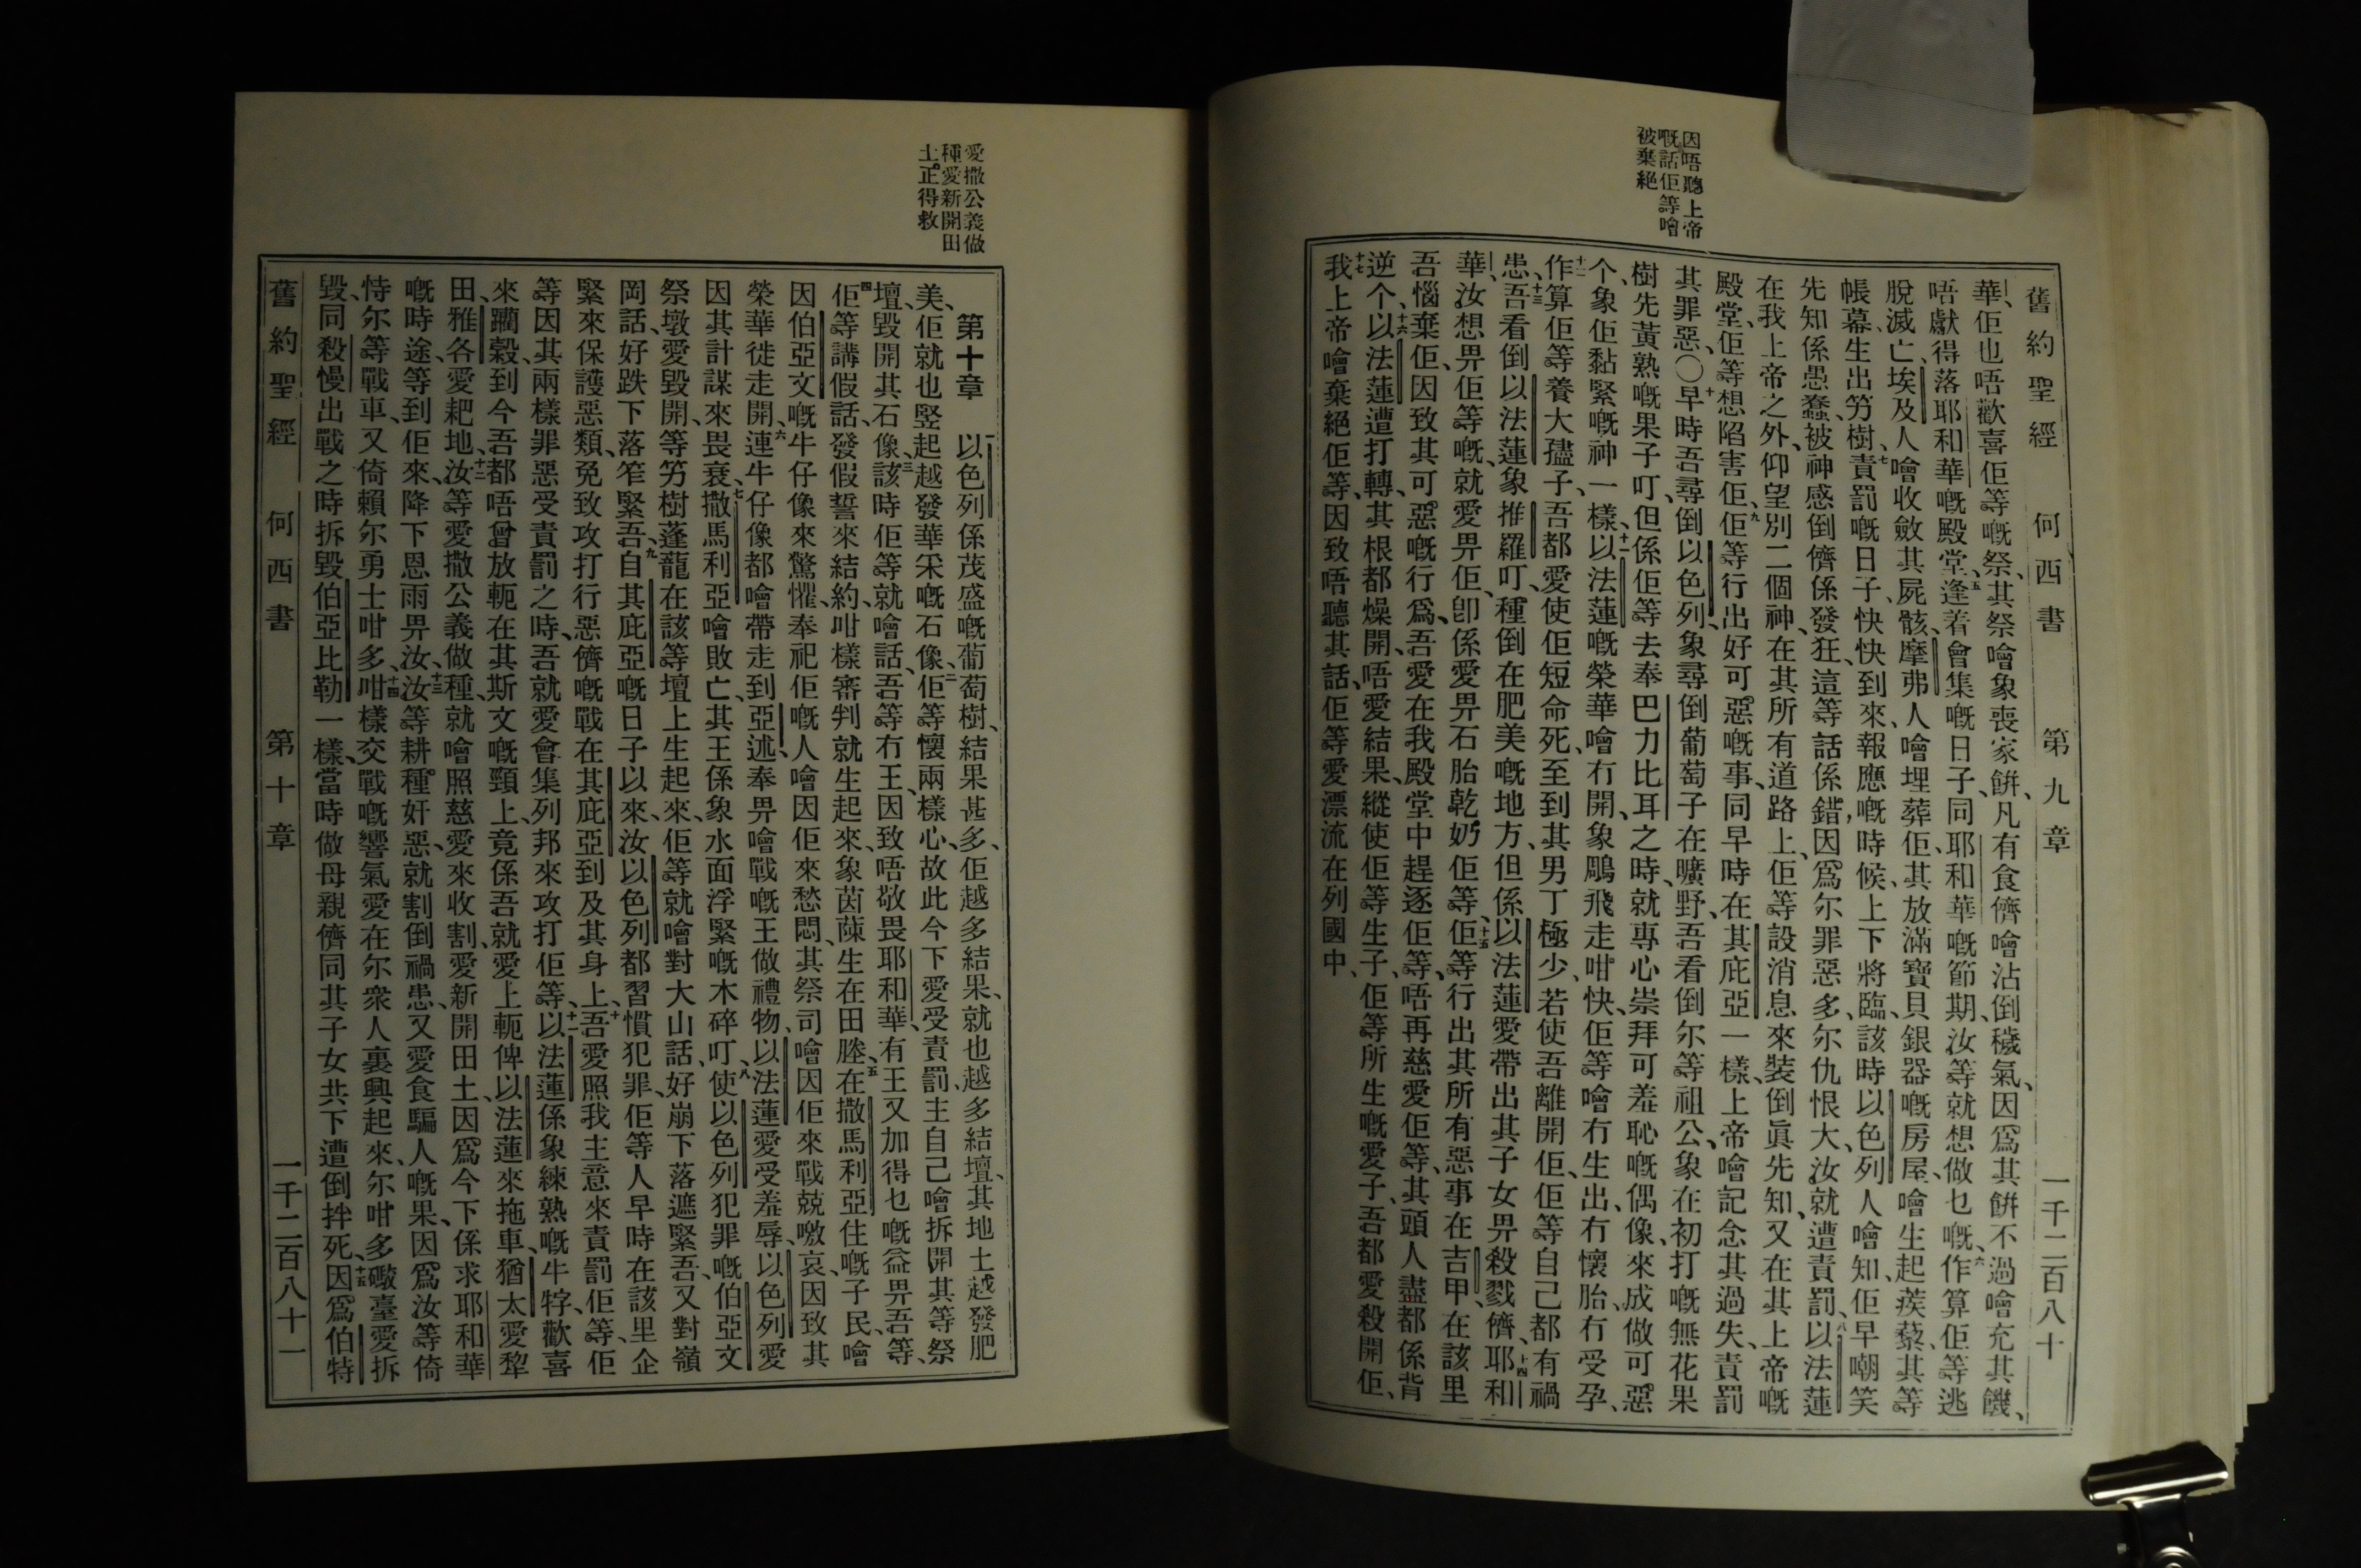 舊約聖經 何西書 第九章 一千二百八十
因唔聽上帝
嘅話佢等噲
被棄絕
華、佢也唔歡喜佢等嘅祭、其祭噲象喪家餅、凡有食儕噲沾倒穢氣、因爲其餅不過噲充其饑、
唔獻得落耶和華嘅殿堂、五逢着會集嘅日子、同耶和華嘅節期、汝等就想做乜嘅、六作算佢等逃
脫滅亡、埃及人噲收斂其屍骸、摩弗人噲埋葬佢、其放滿寶貝銀器嘅房屋、噲生起蒺藜、其等
帳幕、生出竻樹、七責罰嘅日子、快快到來、報應嘅時候、上下將臨、該時以色列人噲知、佢早嘲笑
先知係愚蠢、被神感倒儕係發狂、這等話係錯、因爲尔罪惡多、尔仇恨大、汝就遭責罰、八以法蓮
在我上帝之外、仰望別二個神、在其所有道路上、佢等設消息來裝倒眞先知、又在其上帝嘅
殿堂、佢等想陷害佢、九佢等行出好可惡嘅事、同早時在其庇亞一樣、上帝噲記念其過失、責罰
其罪惡、〇十早時吾尋倒以色列、象尋倒葡萄子在曠野、吾看倒尔等祖公、象在初打嘅無花果
樹先黃熟嘅果子叮、但係佢等去奉巴力比耳之時、就專心崇拜可羞恥嘅偶像、來成做可惡
个、象佢黏緊嘅神一樣、十一以法蓮嘅榮華噲冇開、象鵰飛走咁快、佢等噲冇生出、冇懷胎、冇受孕、
十二作算佢等養大孻子、吾都愛使佢短命死、至到其男丁極少、若使吾離開佢、佢等自己都有禍
患、十三吾看倒以法蓮象推羅叮、種倒在肥美嘅地方、但係以法蓮愛帶出其子女畀殺戮儕、十四耶和
華、汝想畀佢等嘅、就愛畀佢、卽係愛畀石胎乾奶佢等、十五佢等行出其所有惡事在吉甲、在該里
吾惱棄佢、因致其可惡嘅行爲、吾愛在我殿堂中趕逐佢等、唔再慈愛佢等、其頭人盡都係背
逆个、十六以法蓮遭打轉、其根都燥開、唔愛結果、縱使佢等生子、佢等所生嘅愛子、吾都愛殺開佢、
十七我上帝噲棄絕佢等、因致唔聽其話、佢等愛漂流在列國中、
愛撒公義做
種愛新開田
土正得救
第十章 以色列係茂盛嘅葡萄樹、結果甚多、佢越多結果、就也越多結壇、其地土越發肥
美、佢就也竪起越發華宋嘅石像、二佢等懷兩樣心、故此今下愛受責罰、主自己噲拆開其等祭
壇、毀開其石像、三該時佢等就噲話、吾等冇王、因致唔敬畏耶和華、有王又加得乜嘅益畀吾等、
四佢等講假話、發假誓來結約、咁樣審判就生起來、象茵蔯生在田塍、五在撒馬利亞住嘅子民、噲
因伯亞文嘅牛仔像來驚懼、奉祀佢嘅人噲因佢來愁悶、其祭司噲因佢來戰兢噭哀、因致其
榮華徙走開、六連牛仔像都噲帶走到亞述、奉畀噲戰嘅王做禮物、以法蓮愛受羞辱、以色列愛
因其計謀來畏衰、七撒馬利亞噲敗亡、其王係象水面浮緊嘅木碎叮、八使以色列犯罪嘅伯亞文
祭墩、愛毀開、等竻樹蓬龍在該等壇上生起來、佢等就噲對大山話、好崩下落遮緊吾、又對嶺
岡話、好跌下落笮緊吾、九自其庇亞嘅日子以來、汝以色列都習慣犯罪、佢等人早時在該里企
緊來保護惡類、免致攻打行惡儕嘅戰在其庇亞到及其身上、十吾愛照我主意來責罰佢等、佢
等因其兩樣罪惡受責罰之時、吾就愛會集列邦來攻打佢等、十一以法蓮係象練熟嘅牛牸、歡喜
來躪穀、到今吾都唔曾放軛在其斯文嘅頸上、竟係吾就愛上軛俾以法蓮來拖車、猶太愛犂
田、雅各愛耙地、十二汝等愛撒公義做種、就噲照慈愛來收割、愛新開田土、因爲今下係求耶和華
嘅時途、等到佢來、降下恩雨畀汝、十三汝等耕種奸惡、就割倒禍患、又愛食騙人嘅果、因爲汝等倚
恃尔等戰車、又倚賴尔勇士咁多、十四咁樣交戰嘅響氣愛在尔衆人裏興起來、尔咁多礮臺愛拆
毀、同殺慢出戰之時拆毀伯亞比勒一樣、當時做母親儕同其子女共下遭倒拌死、十五因爲伯特
舊約聖經 何西書 第十章 一千二百八十一